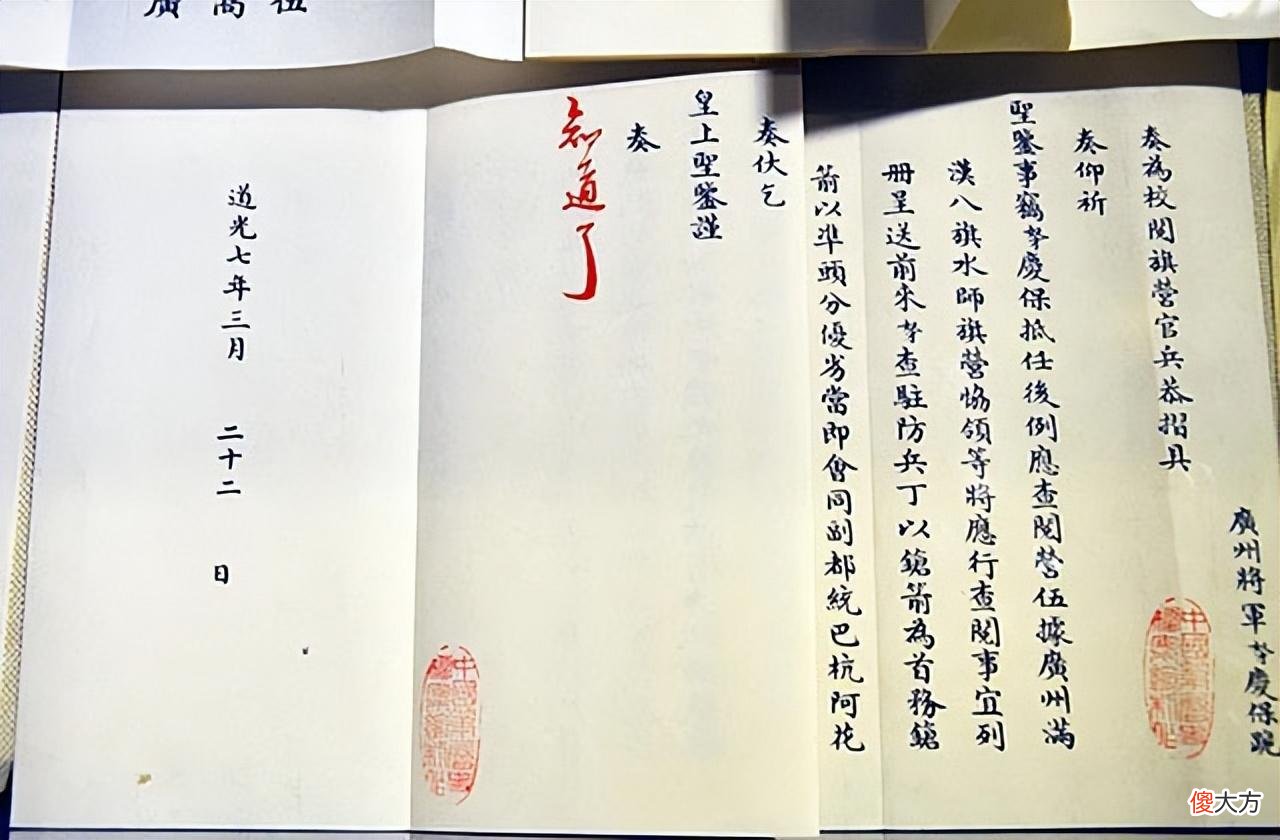 廣州將軍奴才慶保跪
奏為校閱旗營官兵恭摺具
奏仰祈
聖鑒事竊奴才慶保抵任後例應查閱營伍據廣州滿
漢八旗水師旗營協領等將應行查閱事宜列
冊呈送前來奴才查駐防兵丁以鎗箭為首務鎗
箭以準頭分優劣當即會同副都統巴杭阿花
奏伏乞
皇上聖鑒謹
奏
知道了
道光七年三月 二十二 日
傻大方